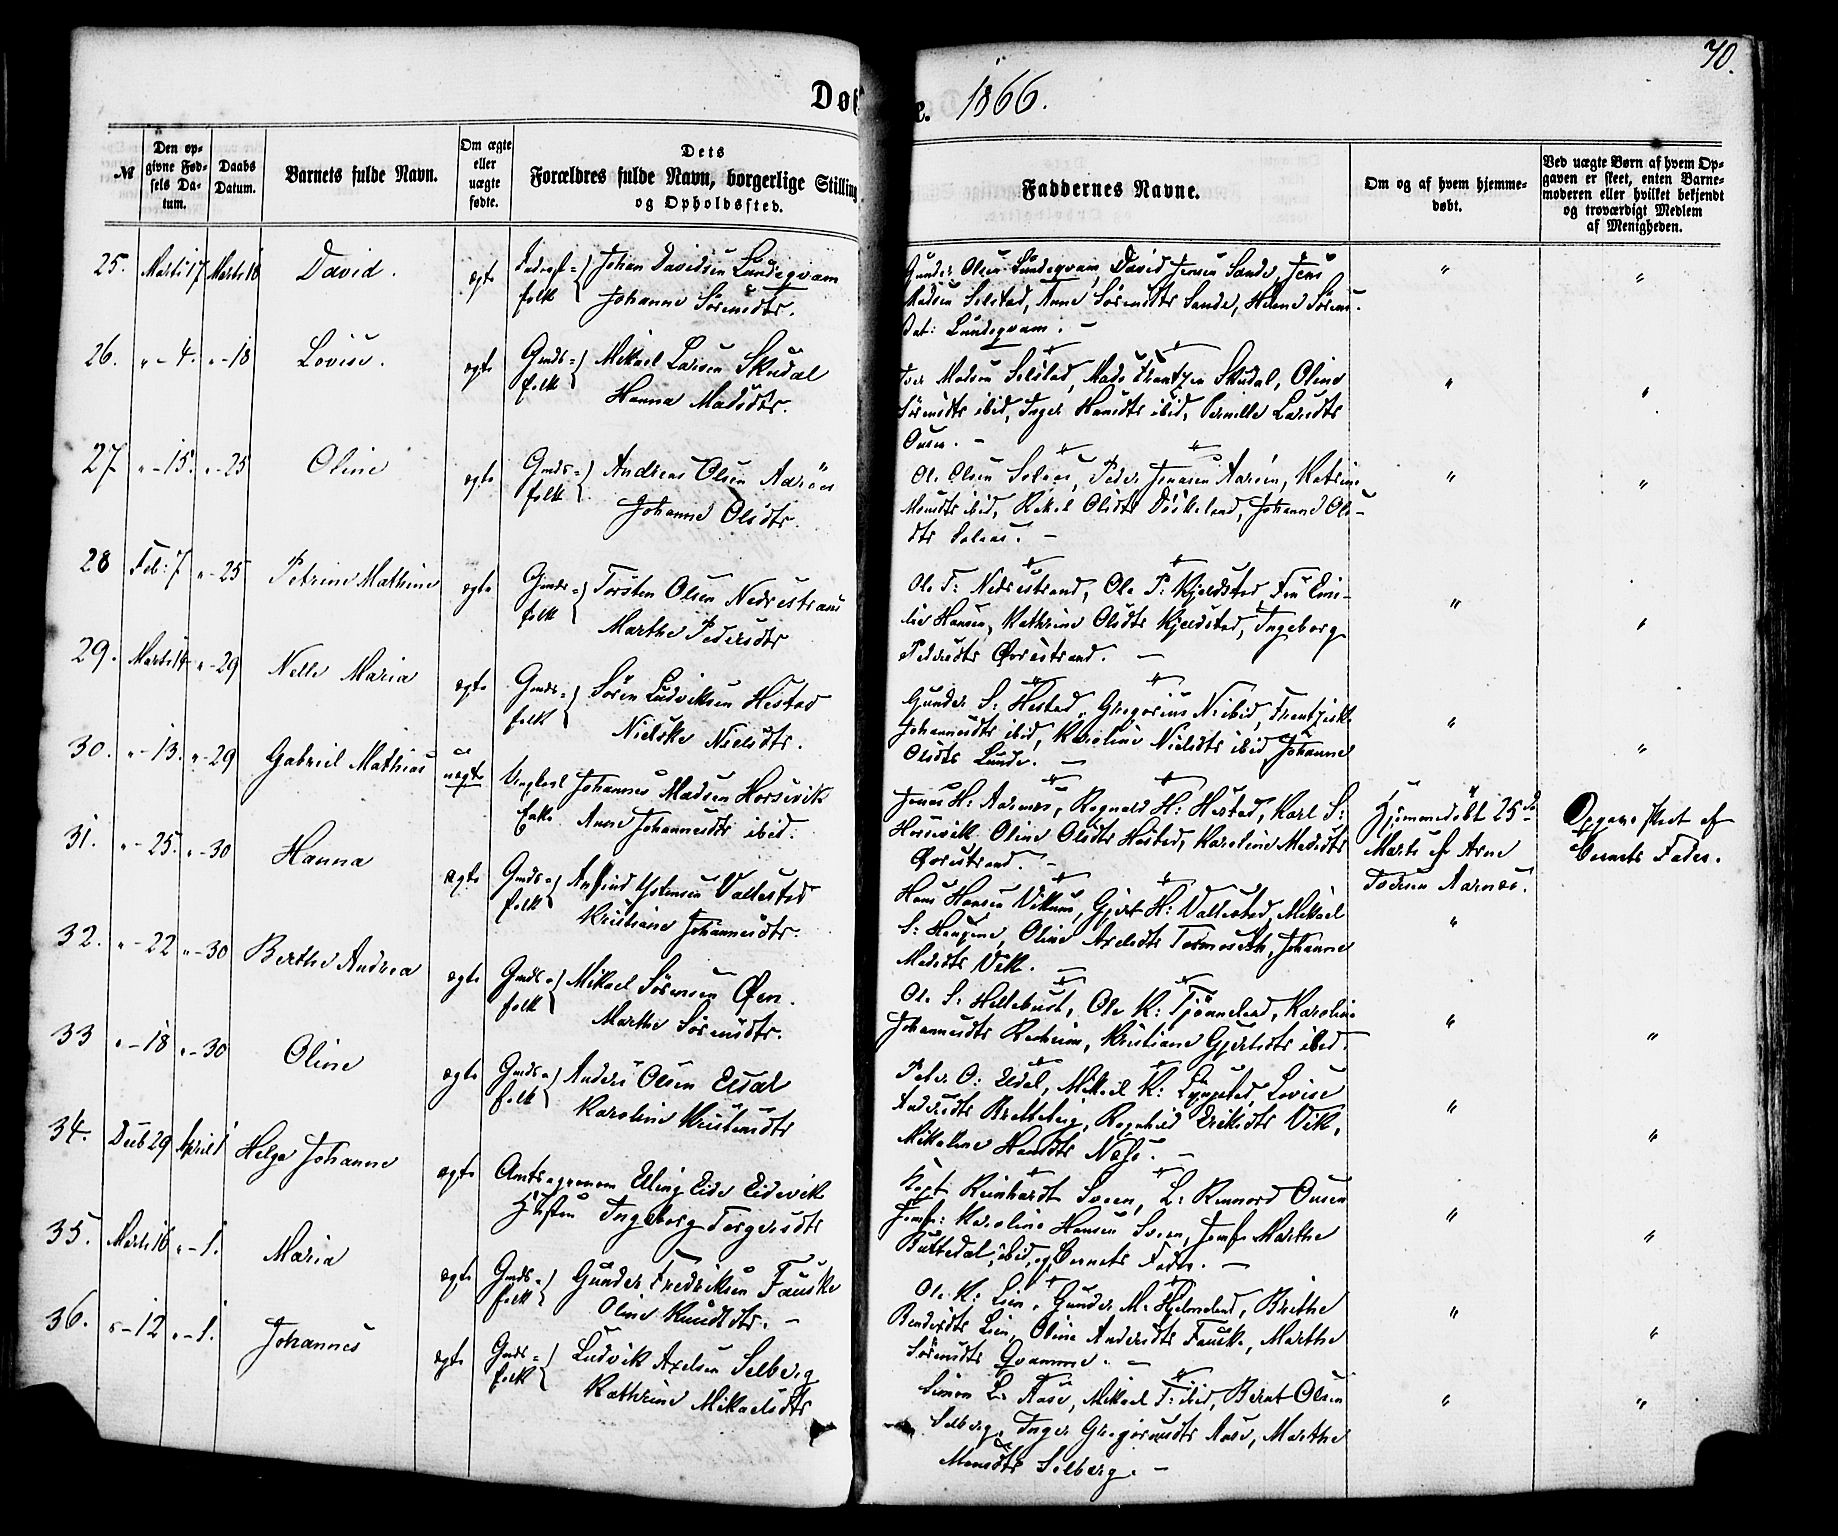 70.
Døbte. 1866.
№ | Den opgivne Fødsels Datum. | Daabs Datum. | Barnets fulde Navn. | Om ægte eller uægte fødte. | Dets Forældres fulde Navn, borgerlige Stilling og Opholdssted. | Faddernes Navne. | Om og af hvem hjemmedøbt. | Ved uægte Børn af hvem Opgaven er skeet, enten Barnemoderen eller hvilket bekjendt og troværdigt Medlem af Menigheden.
25. Marts 17 Marts 18 David. ægte Johan Davidsen Lundeqvam
folk Johanne Sörensdtr.
Gunder Olsen Lundeqvam, David Jensen Sande, Jens
Madsen Selstad, Anne Sörensdtr Sande, Helene Sörens-
Dat: Lundeqvam. —
26. " - 4. " - 18 Lovise. ægte Gmds= Mikael Larsen Skudal
folk Hanna Madsdtr.
Iver Madsen Selstad, Mads Frantzen Skudal, Oline
Sörensdtr ibid, Inger Hansdtr ibid, Pernille Larsdtr
Ousen. —
27 " - 15. " - 25 Oline ægte Gmds= Andreas Olsen Aaröen
folk Johanne Olsdtr.
Ole Olsen Solaas, Peder Jonasen Aaröen, Katrine
Monsdtr ibid, Rakel Olsdtr Döskeland, Johanne Ols-
dtr Solaas. —
28 Feb: 7 " - 25 Petrine Mathine ægte Gmds= Torsten Olsen Nedrestrand
folk Marthe Pedersdtr
Ole T: Nedrestrand, Ole P: Kjeldstad, Emi-
lie Hansen, Kathrine Olsdtr Kjeldstad, Ingeborg
Pedersdtr Övrestrand. —
29. Marts 14 " - 29 Nelle Maria ægte Gmds= Sören Ludviksen Hestad
folk Nielske Nielsdtr.
Gunder S: Hestad, Gregorius N: ibid, Frentziske
Johannesdtr ibid, Karoline Nielsdtr ibid, Johanne
Olsdtr Lunde. —
30. " - 13. " - 29 Gabriel Mathias uægte Ungkarl Johannes Madsen Horsevik
Enke Anne Johannesdtr ibid.
Jonas H: Aarnes, Ragnald H: Hestad, Karl S:
Horsevik, Oline Olsdtr Hestad, Karoline Madsdtr
Övrestrand. —
Hjemmedöbt 25de
Marts af Arne
Iversen Aarnes.
Opgave skeet af
Barnets Fader.
31. " - 25. " - 30 Hanna ægte Gmds= Anfind Ystensen Vallestad
folk Kristiane Johannesdtr.
Hans Hansen Vikum, Gjert H: Vallestad, Mikael
S: Haugene, Oline Axelsdtr Tormoseth, Johanne
Madsdtr Vik. —
32. " - 22 " - 30 Berthe Andrea ægte Gmds= Mikael Sörensen Öen.
folk Marthe Sörensdtr.
Ole S: Hellebust, Ole K: Tjönneland, Karoline
Johannesdtr Redheim, Kristiane Gjertsdtr ibid.
33 " - 18 " - 30 Oline ægte Gmds= Anders Olsen Eldal
folk Karoline Kristensdtr
Peter O: Eldal, Mikael K: Lyngstad, Lovise
Andersdtr Bratteberg, Ragnhild Eriksdtr Vik,
Mikaline Hansdtr Næss. —
34. Decb 29 April 1 Helga Johanne ægte Amtsagronom Elling Eide Eidevik
Hustru Ingeborg Torgersdtr
Kapt. Reinhardt Sveen, L: Rennord Ousen
Jomfr: Karoline Hansen Sveen, Jomfr Marthe
Buttedal, ibid, og Barnets Fader. —
35. Marts 16 " - 1. Maria ægte Gmds= Gunder Fredriksen Fauske
folk Oline Knudsdtr. —
Ole K: Lien, Gunder M: Hjelmeland, Brithe
Bendixdtr Lien, Oline Andersdtr Fauske, Marthe
Sörensdtr Qvamme. —
36. " - 12 " - 1. Johannes ægte Gmds= Ludvik Axelsen Selberg
folk Kathrine Mikaelsdtr
Simon L: Aase, Mikael T: ibid, Bernt Olsen
Selberg, Inger Gregoriusdtr Aase, Marthe
Monsdtr Selberg. —